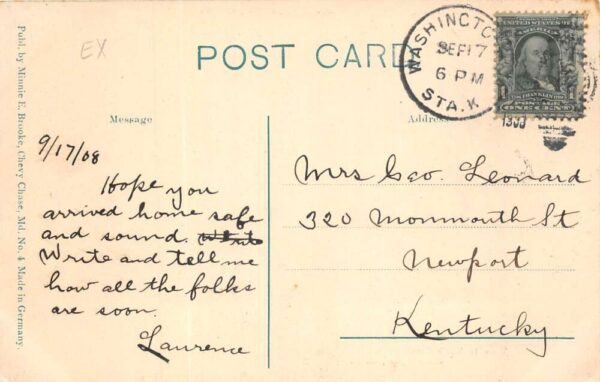 EX
POST CARD
WASHINGTO
SEP 17
6 PM
STA. K
1908
UNITED STATES OF AMERICA
1 FRANKLIN 1
POSTAGE
ONE CENT
Publ. by Minnie E. Brooke, Chevy Chase, Md. No. 4 Made in Germany.
Message
9/17/08
Hope you
arrived home safe
and sound. Write
Write and tell me
how all the folks
are soon.
Laurence
Address
Mrs Geo. Leonard
320 Monmouth St
Newport
Kentucky